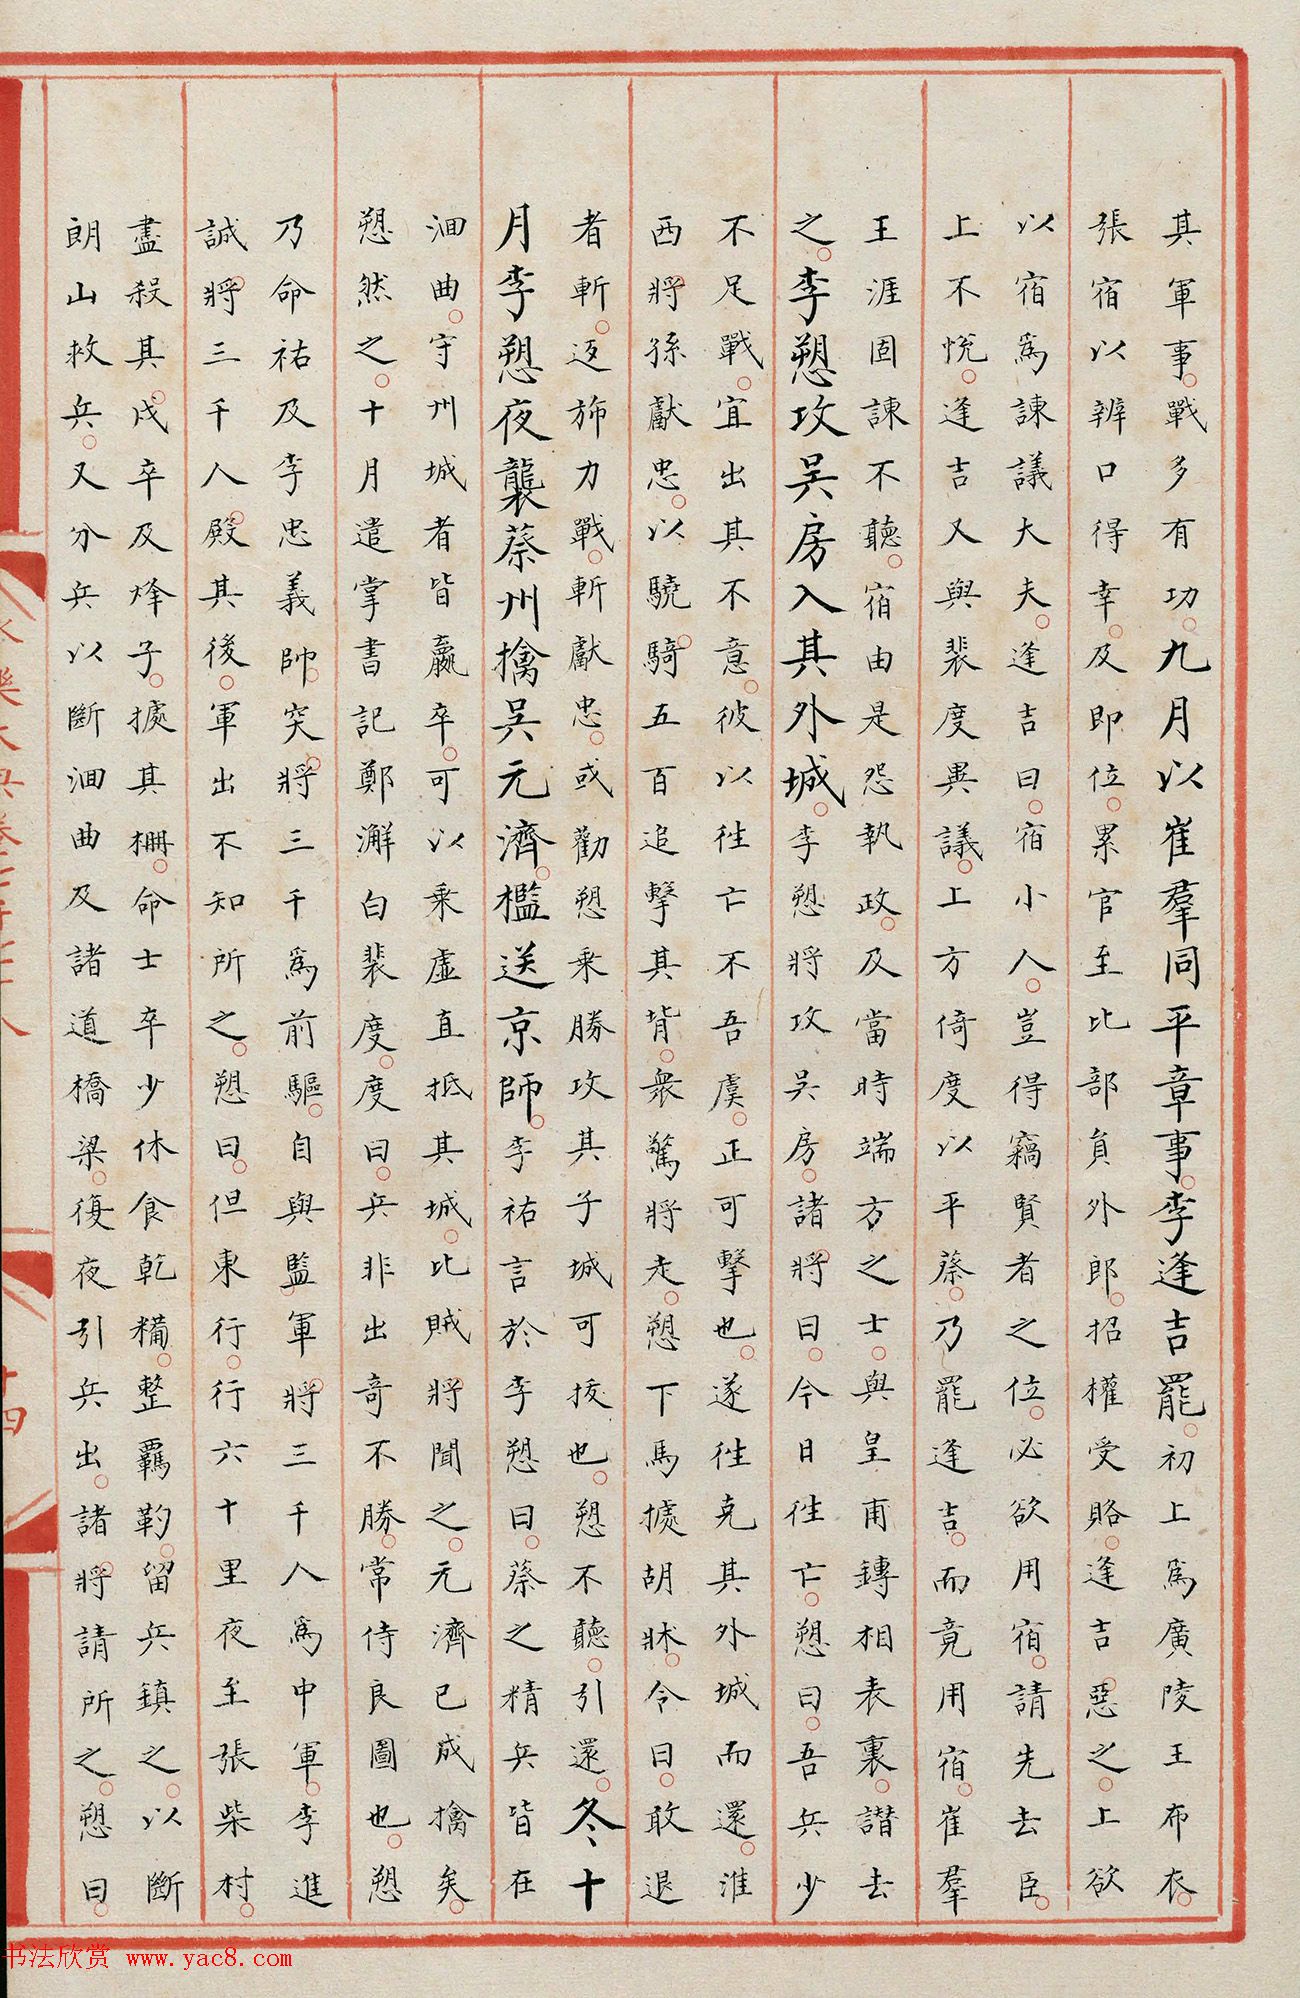 其軍事戰多有功九月以崔羣同平章事李逢吉罷初上爲廣陵王布衣
張宿以辨口得幸及即位累官至比部負外郎招權受賂逢吉惡之上欲
以宿爲諫議大夫逢吉曰宿小人豈得竊賢者之位必欲用宿請先去臣
上不悅逢吉又與裴度異議上方倚度以平蔡乃罷逢吉而竟用宿崔羣
王涯固諫不聽宿由是怨執政及當時端方之士與皇甫鏄相表裏譖去
之李愬攻吳房入其外城李愬將攻吳房諸將曰今日徃亡愬曰吾兵少
不足戰宜出其不意彼以徃亡不吾虞正可擊也遂徃克其外城而還淮
西將孫獻忠以驍騎五百追擊其背衆驚將走愬下馬據胡牀令曰敢退
者斬返斾力戰斬獻忠或勸愬乘勝攻其子城可拔也愬不聽引還冬十
月李愬夜襲蔡州擒吳元濟檻送京師李祐言於李愬曰蔡之精兵皆在
洄曲守州城者皆羸卒可以乘虛直抵其城比賊將聞之元濟已成擒矣
愬然之十月遣掌書記鄭澥白裴度度曰兵非出奇不勝常侍良圖也愬
乃命祐及李忠義帥突將三千爲前驅自與監軍將三千人爲中軍李進
誠將三千人殿其後軍出不知所之愬曰但東行行六十里夜至張柴村
盡殺其戍卒及烽子據其柵命士卒少休食乾糒整羈靮留兵鎮之以斷
朗山救兵又分兵以斷洄曲及諸道橋梁復夜引兵出諸將請所之愬曰
书法欣赏 www.yac8.com